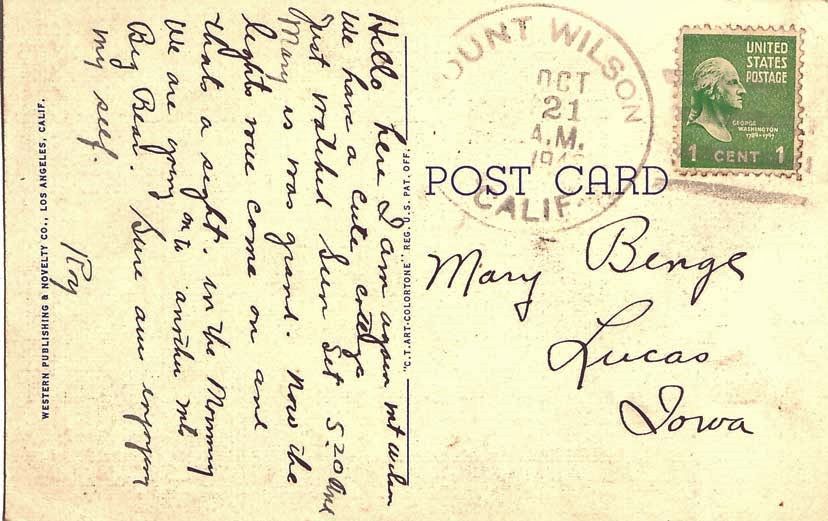 Hello here I am again Mt Wilson
We have a cute cottage
Just watched Sun Set 5:20 and
Mary is was grand. Now the
lights will come on and
thats a sight. in the Morning
We are going on to another mts
Big Bear. Sure am enjoying
my self.
Roy
WESTERN PUBLISHING & NOVELTY CO., LOS ANGELES, CALIF.
"C.T. ART-COLORTONE" REG. U.S. PAT. OFF.
OUNT WILSON
OCT
21
A.M.
CALIF.
UNITED
STATES
POSTAGE
GEORGE
WASHINGTON
1789-1797
1 CENT 1
POST CARD
Mary Benge
Lucas
Iowa